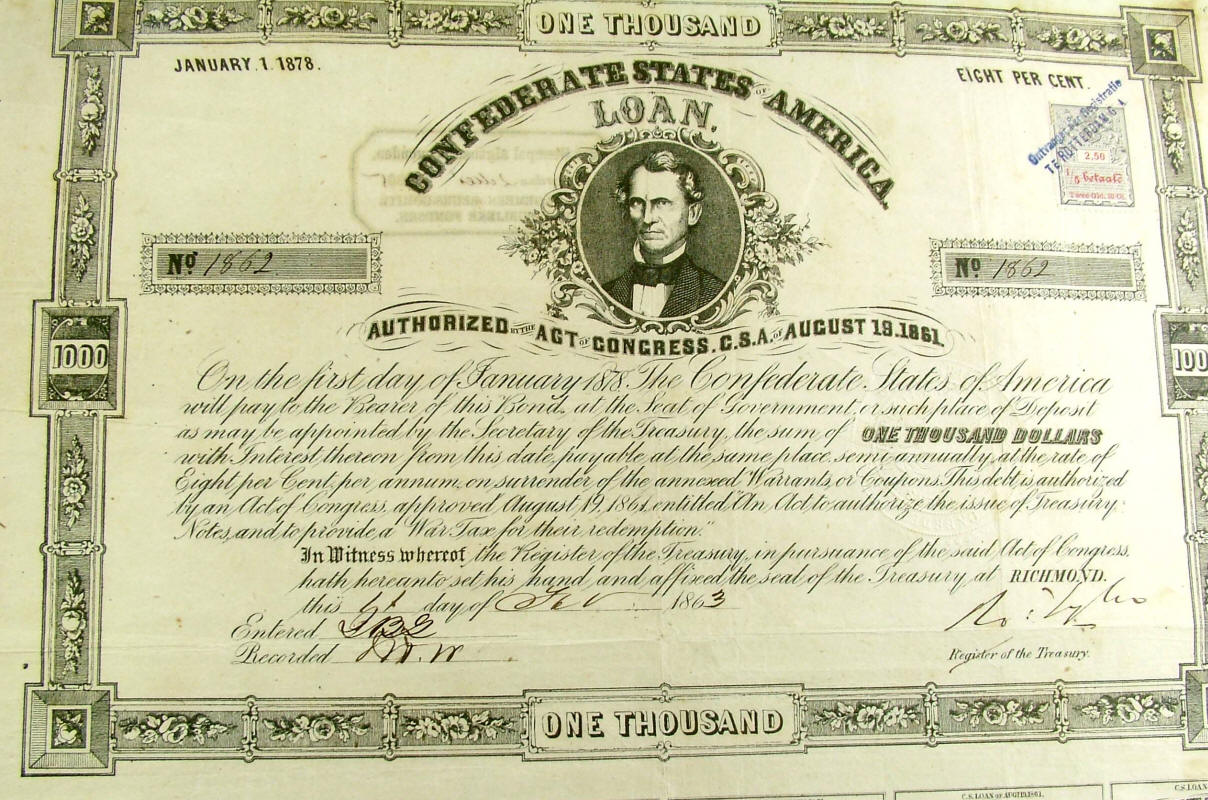 ONE THOUSAND
JANUARY. 1. 1878.
EIGHT PER CENT.
CONFEDERATE STATES OF AMERICA
LOAN.
TE ROTTERDAM
2,50
No 1862
No 1862
AUTHORIZED BY THE ACT OF CONGRESS. C.S.A. OF AUGUST 19. 1861.
1000
100
On the first day of January 1878. The Confederate States of America
will pay to the Bearer of this Bond, at the Seat of Government, or such place of Deposit
as may be appointed by the Secretary of the Treasury, the sum of ONE THOUSAND DOLLARS
with Interest thereon from this date, payable at the same place, semi-annually, at the rate of
Eight per Cent, per annum, on surrender of the annexed Warrants, or Coupons. This debt is authorized
by an Act of Congress, approved August 19, 1861, entitled "An Act to authorize the issue of Treasury
Notes, and to provide a War Tax for their redemption."
In Witness whereof, the Register of the Treasury, in pursuance of the said Act of Congress,
hath hereunto set his hand, and affixed the seal of the Treasury, at RICHMOND.
this day of Feb 1863
Entered
Recorded
Register of the Treasury.
ONE THOUSAND
C.S. LOAN OF AUG 19. 1861.
C.S. LOAN